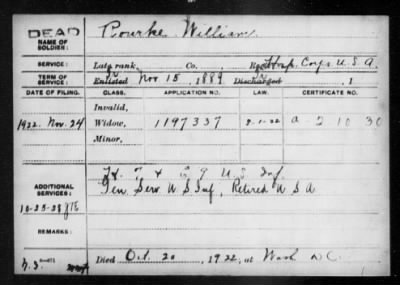 DEAD
NAME OF SOLDIER:
Rourke William
SERVICE:
Late rank, Co. Reg't Hosp. Corps U.S.A.
TERM OF SERVICE:
Enlisted Nov 15, 1889 Discharged , 1
DATE OF FILING. CLASS. APPLICATION NO. LAW. CERTIFICATE NO.
Invalid,
1922, Nov. 24 Widow, 1197337 a 2 10 30
Minor,
ADDITIONAL SERVICES:
U.S. Inf
Gen Serv U.S. Inf, Retired U S A
REMARKS:
Died Oct. 20, 1922, at Wash D.C.